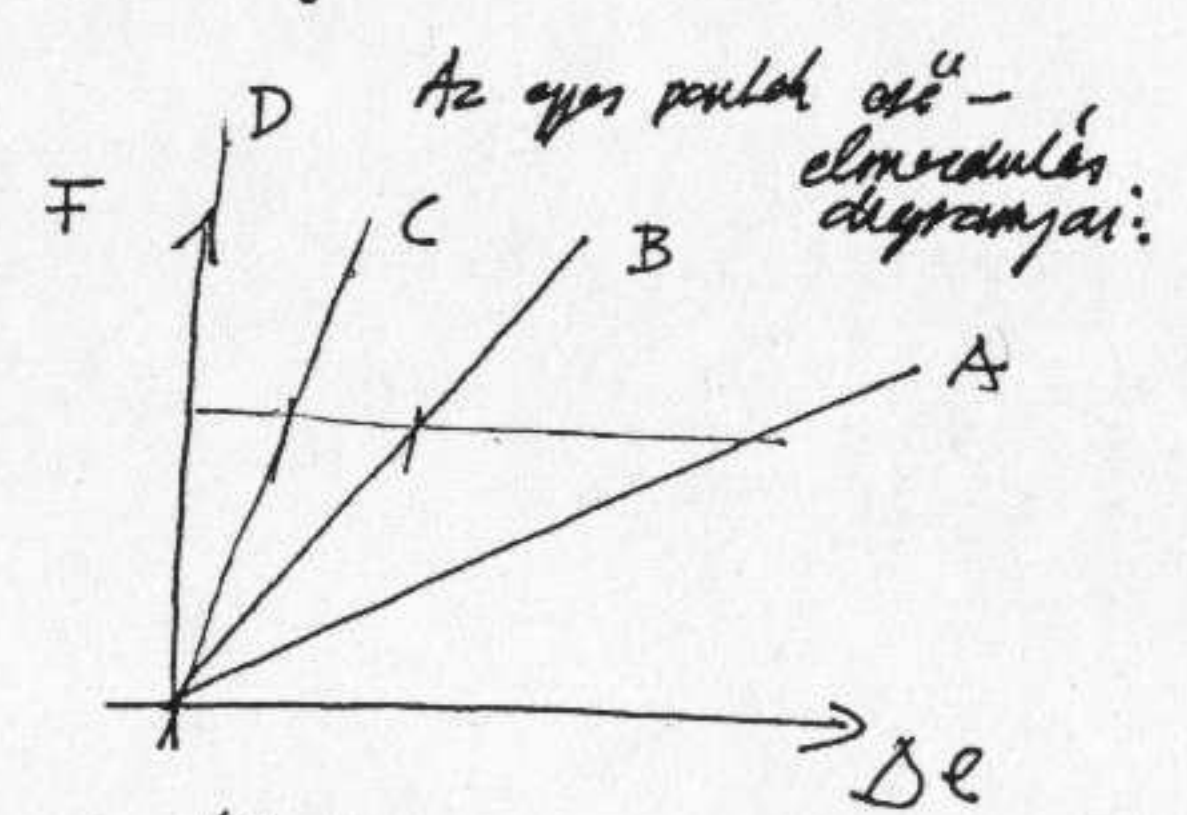 D
Az egyes pontok erő-
elmozdulás
F
C
B
diagramjai:
A
Δl